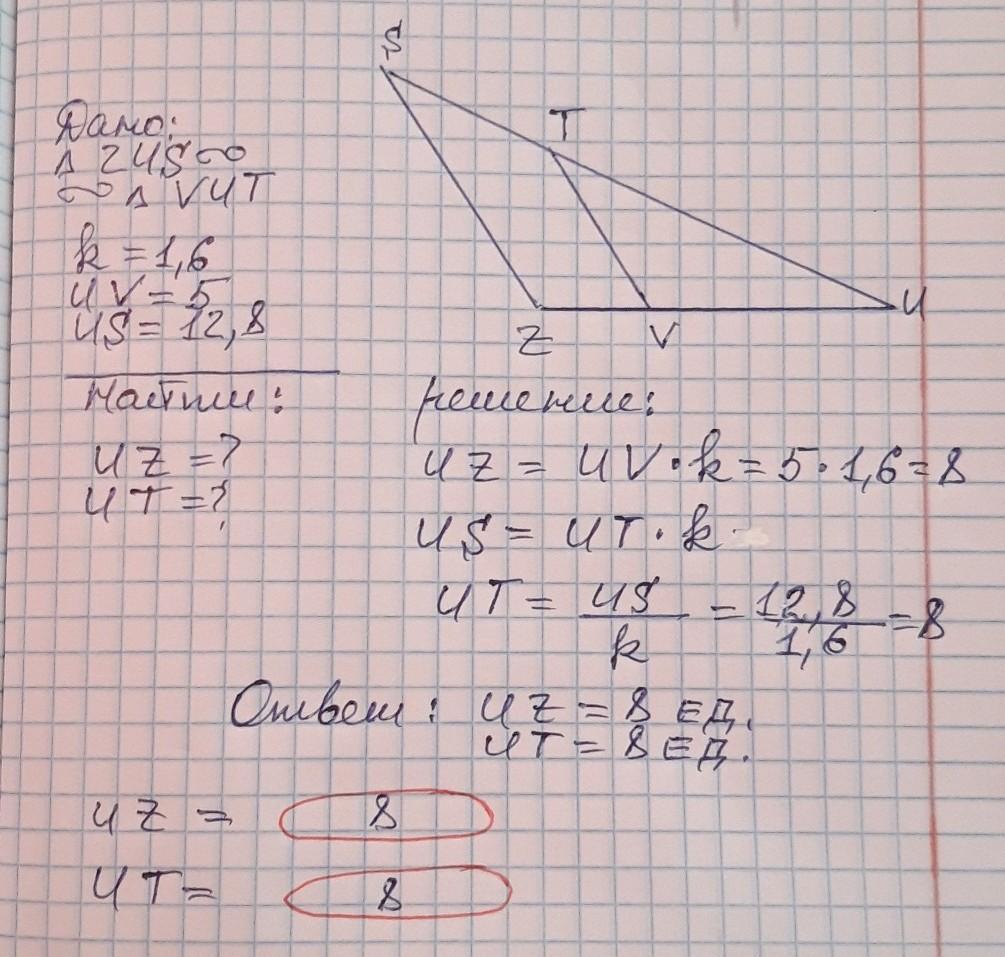 S
Дано:
T
Δ ZUS ∾
∾ Δ VUT
k = 1,6
UV = 5
US = 12,8
U
Z
V
Найти:
Решение:
UZ = ?
UZ = UV · k = 5 · 1,6 = 8
UT = ?
US = UT · k
UT = US/k = 12,8/1,6 = 8
Ответ: UZ = 8 ед.
UT = 8 ед.
UZ = 8
UT = 8